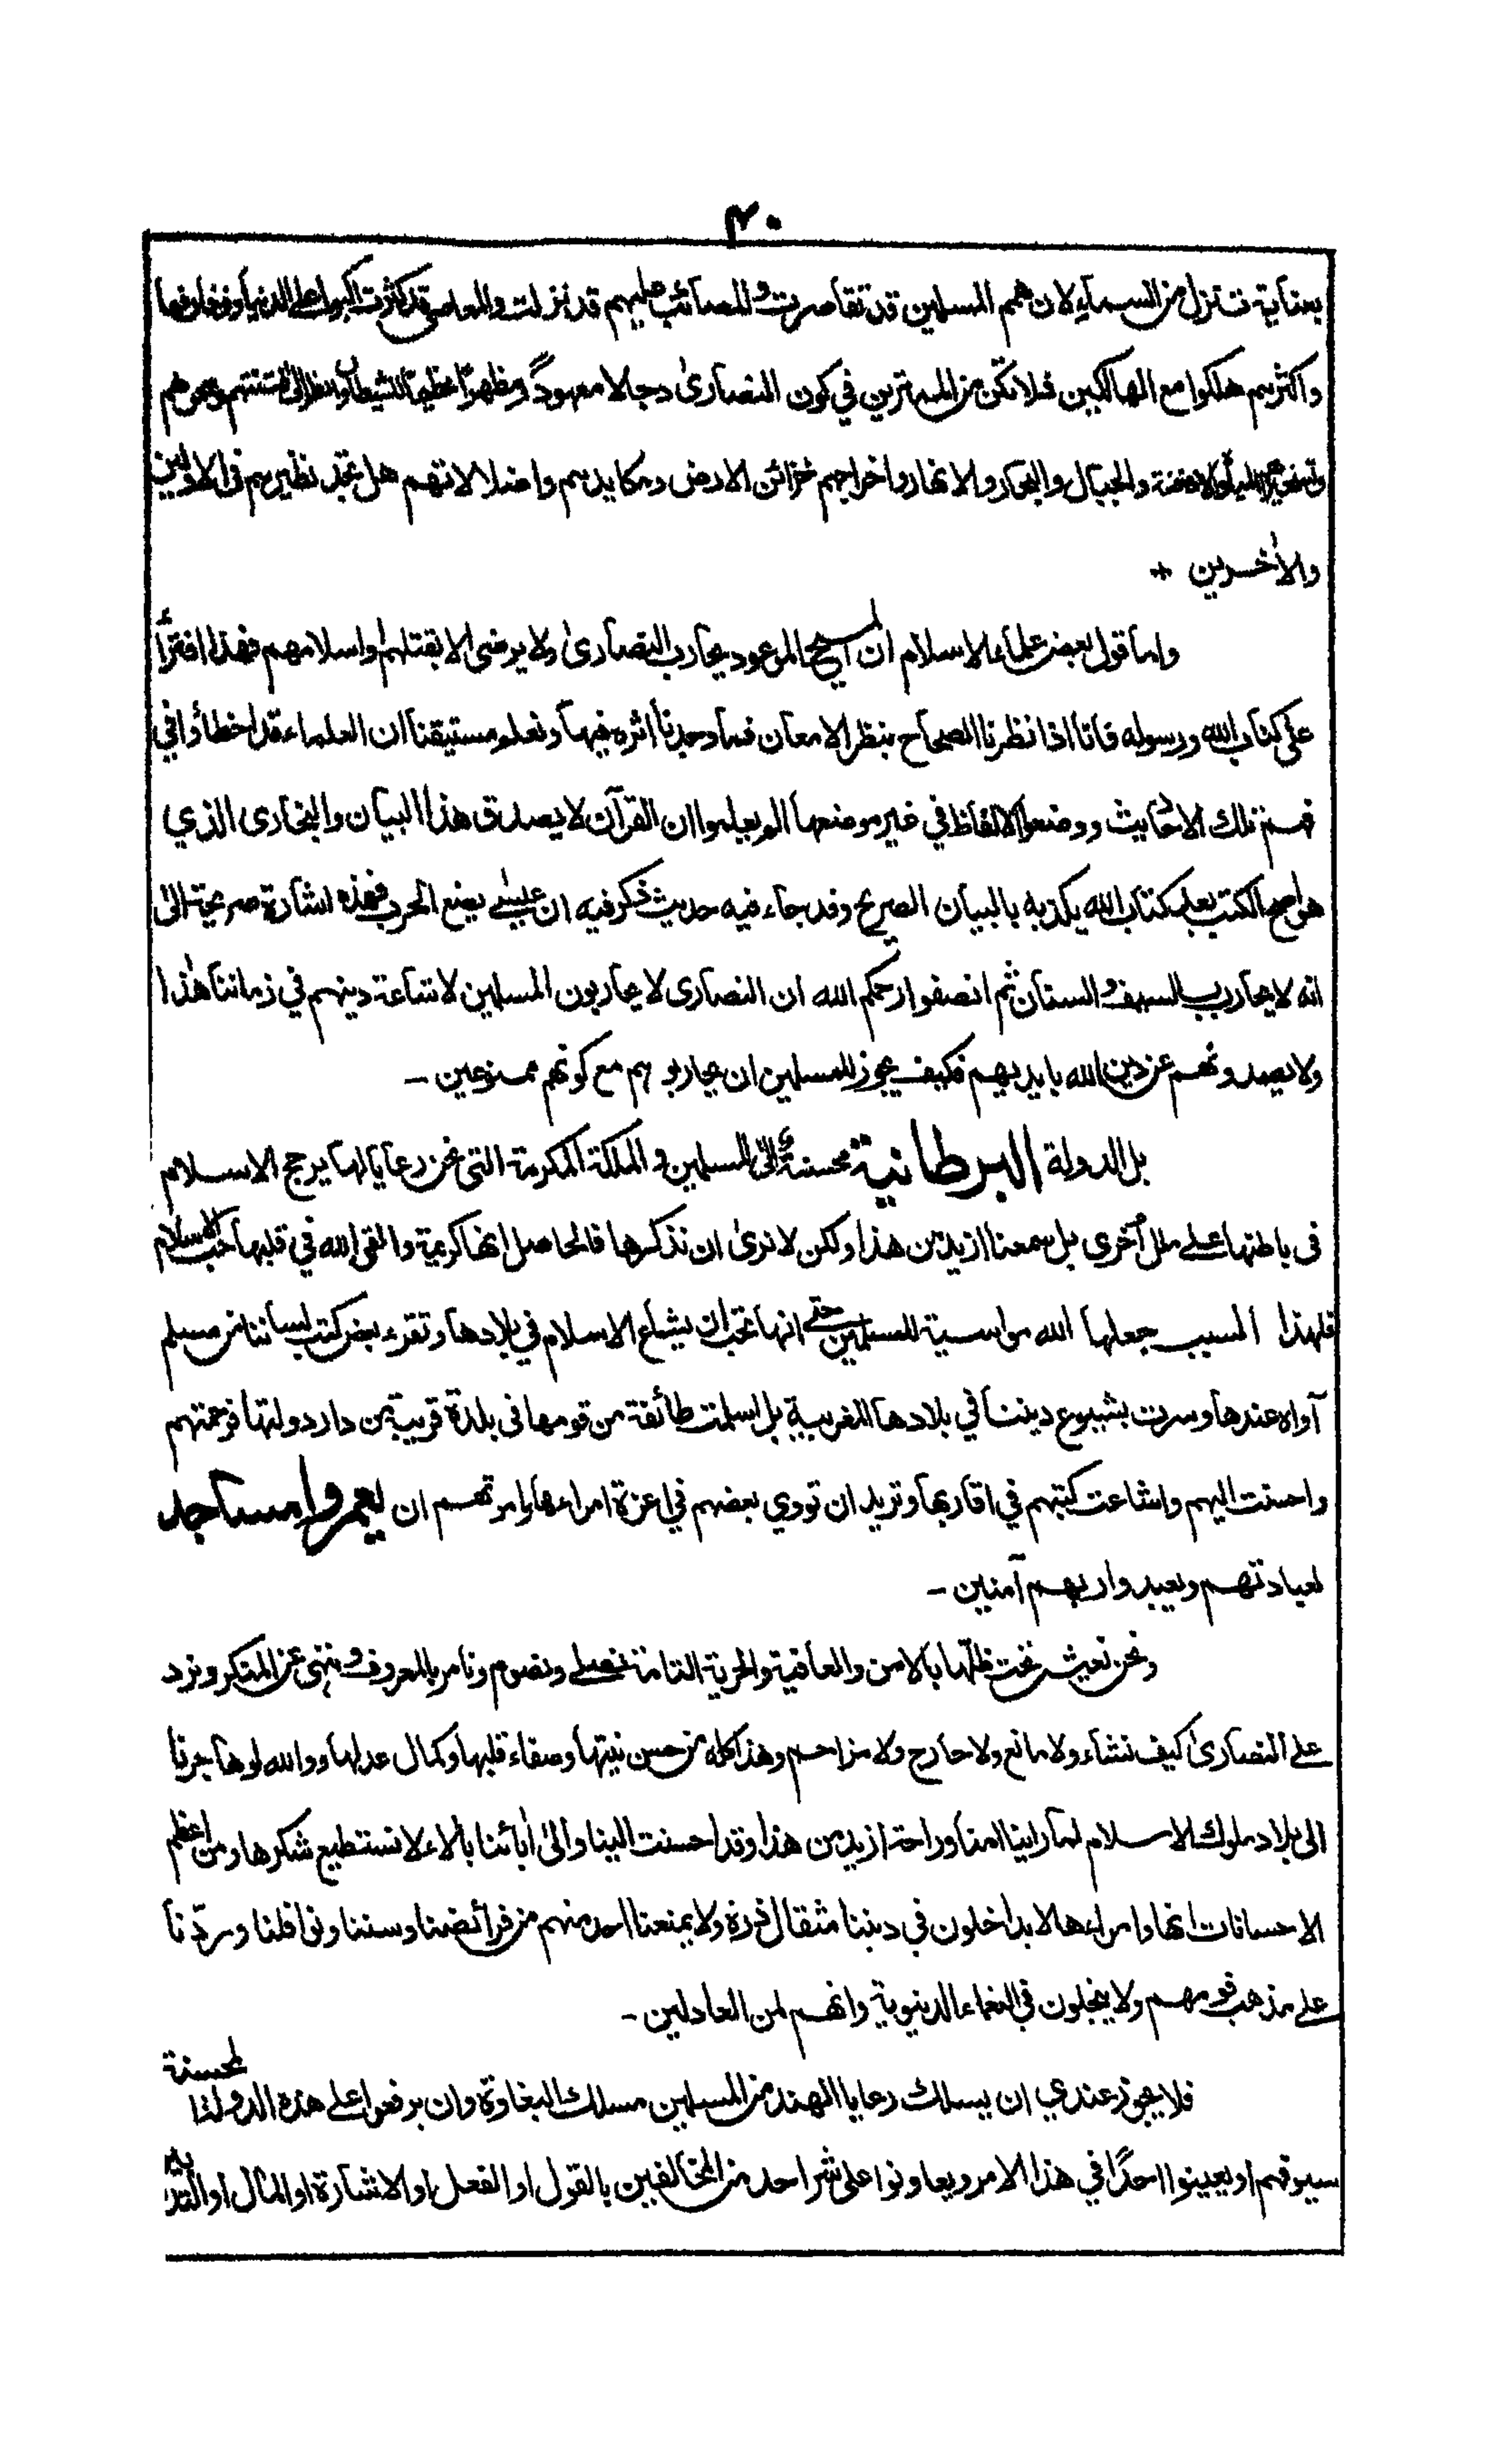 ۴۰
بعناية تنزل من السماء لان همم المسلمين قد تقاصرت والمصائب عليهم قد نزلت والمعاصي قد كثرت اكبوا على الدنيا
واكثرهم هلكوا مع الهالكين فلا تكن من الممترين في كون النصارى دجالا معهودًا ومظهرًا عظيمًا للشيطان وانظر الى فتنتهم
والجبال والبحار والانهار واخراجهم خزائن الارض ومكايدهم واضلالاتهم هل تجد نظيرهم في الاولين
والأخرين +
واما قول بعض علماء الاسلام ان المسيح الموعود يحارب النصارىٰ ولا يرضى الا بقتلهم او اسلامهم فهذا افتراً
على كتاب الله ورسوله فانا اذا نظرنا الصحاح بنظر الامعان فما وجدنا اثره فيها ونعلم مستيقنا ان العلماء قد اخطأوا في
فهم تلك الاحاديث ووضعوا الالفاظ في غير موضعها الم يعلموا ان القرآن لا يصدق هذا البيان والبخارى الذي
هو اصح الكتب بعد كتاب الله يكذبه بالبيان الصريح وقد جاء فيه حديث ذكر فيه ان عيسىٰ يضع الحرب فهذه اشارة صريحة الى
انه لا يحارب بالسيف والسنان ثم انصفوا رحمكم الله ان النصارى لا يحاربون المسلمين لاشاعة دينهم في زماننا هذا
ولا يصدونهم عن دين الله بايديهم فكيف يجوز للمسلمين ان يحاربوهم مع كونهم ممنوعين -
بل الدولة البرطانية محسنة الى المسلمين و الملكة المكرمة التى نحن رعايا لها يرجح الاسلام
فى باطنها على ملل أخرى بل سمعنا ازيد من هذا ولكن لا نرىٰ ان نذكرها فالحاصل انها كريمة والقى الله في قلبها حب الاسلام
فلهذا السبب جعلها الله مواسية للمسلمين حتى انها تحب ان يشاع الاسلام في بلادها وتقرء بعض كتب لساننا من مسلم
آواه عندها وسرت بشيوع ديننا في بلادها الغربية بل اسلمت طائفة من قومها فى بلدة قريبة من دار دولتها فرحمتهم
واحسنت اليهم واشاعت كتبهم في اقاربها وتريد ان تووي بعضهم في اعزة امراءها وامرتهم ان يعمروا مساجد
لعبادتهم ويعبدوا ربهم آمنين -
ونحن نعيش تحت ظلها بالامن والعافية والحرية التامة نصلي ونصوم ونامر بالمعروف وننهى عن المنكر ونرد
على النصارىٰ كيف نشاء ولا مانع ولا حارج ولا مزاحم وهذا كله من حسن نيتها وصفاء قلبها وكمال عدلها ووالله لو هاجرنا
الى بلاد ملوك الاسلام لما راينا امنا وراحة ازيد من هذا وقد احسنت الينا والىٰ اٰبائنا بالاء لا نستطيع شكرها ومن اعظم
الاحسانات انها وامراءها لا يداخلون في ديننا مثقال ذرة ولا يمنعنا احد منهم من فرائضنا وسننا ونوافلنا وردّنا
على مذهب قومهم ولا يبخلون في النعماء الدنيوية وانهم لمن العادلين -
فلا يجوز عندي ان يسلك رعايا الهند من المسلمين مسلك البغاوة وان يرفعوا على هذه الدولة المحسنة
سيوفهم او يعينوا احدًا في هذا الامر ويعاونوا على شر احد من المخالفين بالقول او الفعل او الاشارة او المال او التدبير